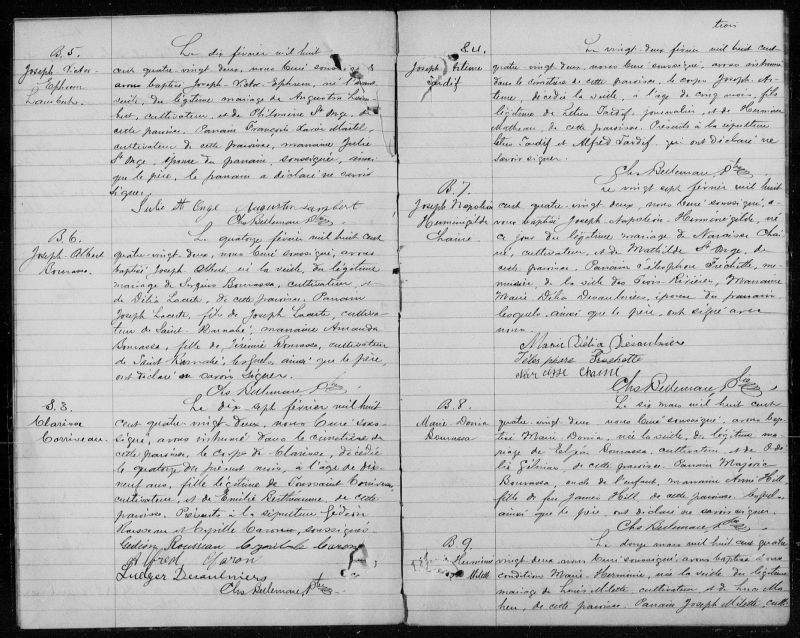 B. 5.
Joseph Victor
Ephrem
Lambert.
Le dix février mil huit
cent quatre-vingt deux, nous Curé soussigné
avons baptisé Joseph Victor Ephrem, né l'avant
veille, du légitime mariage de Augustin Lam-
bert, cultivateur, et de Philomène St Onge, de
cette paroisse. Parrain François Xavier Martel,
cultivateur de cette paroisse, marraine Julie
St Onge, épouse du parrain, soussignée, ainsi
que le père, le parrain a déclaré ne savoir
signer.
Julie St Onge Augustin Lambert
Chs Bellemare Ptre
B. 6.
Joseph Albert
Bourassa.
Le quatorze février mil huit cent
quatre-vingt deux, nous Curé soussigné, avons
baptisé Joseph Albert, né la veille, du légitime
mariage de Bourassa, cultivateur, et
de Délia Lacerte, de cette paroisse. Parrain
Joseph Lacerte, fils de Joseph Lacerte, cultiva-
teur de Saint Barnabé, marraine Amanda
Bourassa, fille de Jérémie Bourassa, cultivateur
de Saint Barnabé, lesquels ainsi que le père,
ont déclaré ne savoir signer.
Chs Bellemare Ptre
S. 3.
Clarisse
Corriveau.
Le dix sept février mil huit
cent quatre-vingt deux, nous Curé sous-
signé, avons inhumé dans le cimetière de
cette paroisse, le corps de Clarisse, décédée
le quatorze du présent mois, à l'age de dix-
neuf ans, fille légitime de Toussaint Corriveau,
cultivateur, et de Emilie Berthiaume, de cette
paroisse. Présents à la sépulture Gédéon
Rousseau et Cyrille Caron, soussignés
Gédéon Rousseau Cyrille Caron
Alfred Caron
Ludger Desaulniers
Chs Bellemare Ptre
trois
S. 4.
Joseph Artème
Tardif
Le vingt-deux février mil huit cent
quatre-vingt deux, nous Curé soussigné, avons inhumé
dans le cimetière de cette paroisse, le corps Joseph Ar-
tème, décédé la veille, à l'âge de cinq mois, fils
légitime de Tardif journalier, et de Herminie
Matheau, de cette paroisse. Présents à la sépulture
Tardif et Alfred Tardif, qui ont déclaré ne
savoir signer.
Chs Bellemare Ptre
B. 7.
Joseph Napoléon
Herménégilde
Chainé
Le vingt sept février mil huit
cent quatre-vingt deux, nous Curé soussigné, a-
vons baptisé Joseph Napoléon Herménégilde, né
ce jour du légitime mariage de Narcisse Chai-
né, cultivateur, et de Mathilde St Onge, de
cette paroisse. Parrain Télesphore Fréchette, me-
nuisier, de la ville des Trois Rivières, Marraine
Marie Délia Desaulniers, épouse du parrain
lesquels, ainsi que le père, ont signé avec
nous.
Marie Délia Desaulniers
Télesphore Frechette
Narcisse Chainé
Chs Bellemare Ptre
B. 8.
Marie Donia
Bourassa
Le six mars mil huit cent
quatre-vingt deux, nous Curé soussigné, avons bap-
tisé Marie Donia, née la veille, du légitime ma-
riage de Elzéar Bourassa, cultivateur, et de O-
lié Gélinas, de cette paroisse. Parrain Majoric
Bourassa, oncle de l'enfant, marraine Anne Hill
fille de feu James Hill, de cette paroisse. Lesquels
ainsi que le père, ont déclaré ne savoir signer.
Chs Bellemare Ptre
B. 9.
Herminie
Milette
Le douze mars mil huit cent quatre
vingt deux, nous Curé soussigné, avons baptisé sous
condition Marie Herminie, née la veille du légitime
mariage de Louis Milette, cultivateur, et de Ma-
heu, de cette paroisse. Parrain Joseph Milette, culti-